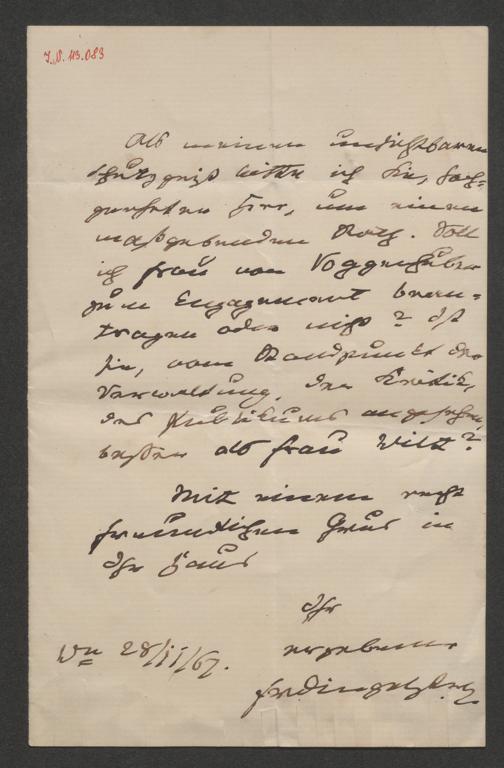 I.N. 113.083
Als meinen unsichtbaren
Schutzgeist bitte ich Sie, hoch-
geehrter Herr, um einen
maßgebenden Rath. Soll
ich Frau von Voggenhuber
zum Engagement bean-
tragen oder nicht? Ist
sie, vom Standpunkt der
Verwaltung, der Kritik,
des Publikums angesehen,
besser als Frau Wilt?
Mit einem recht
freundlichen Grus in
Ihr Haus
Ihr
ergebener
Frz Dingelstedt
Wn 28/11/67.